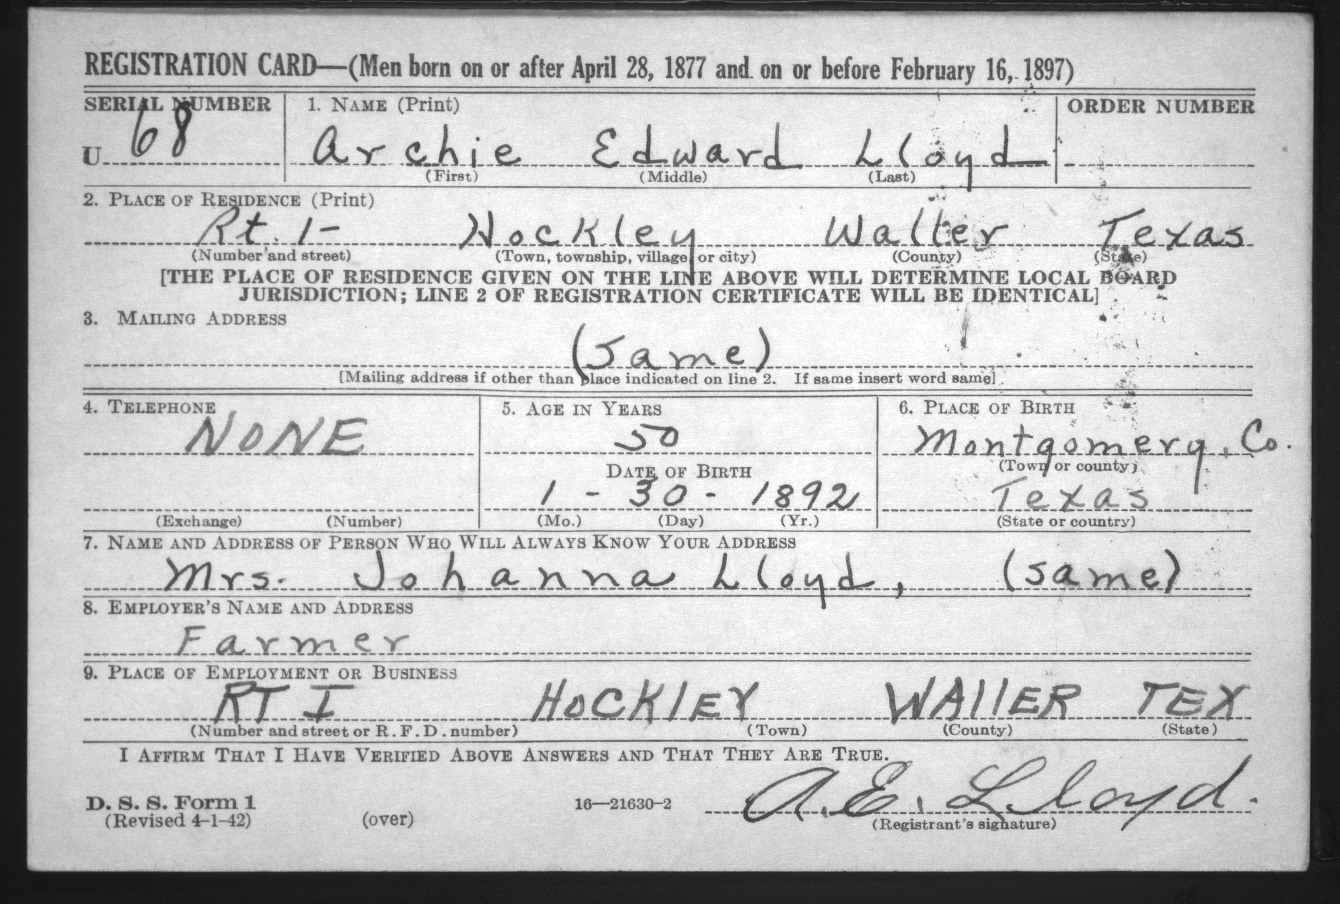 REGISTRATION CARD—(Men born on or after April 28, 1877 and on or before February 16, 1897)
SERIAL NUMBER 1. NAME (Print) ORDER NUMBER
U 68 Archie Edward Lloyd
(First) (Middle) (Last)
2. PLACE OF RESIDENCE (Print)
Rt. 1- Hockley Waller Texas
(Number and street) (Town, township, village, or city) (County) (State)
[THE PLACE OF RESIDENCE GIVEN ON THE LINE ABOVE WILL DETERMINE LOCAL BOARD
JURISDICTION; LINE 2 OF REGISTRATION CERTIFICATE WILL BE IDENTICAL]
3. MAILING ADDRESS
(Same)
[Mailing address if other than place indicated on line 2. If same insert word same]
4. TELEPHONE 5. AGE IN YEARS 6. PLACE OF BIRTH
NONE 50 Montgomery, Co.
DATE OF BIRTH (Town or county)
1 - 30 - 1892 Texas
(Exchange) (Number) (Mo.) (Day) (Yr.) (State or country)
7. NAME AND ADDRESS OF PERSON WHO WILL ALWAYS KNOW YOUR ADDRESS
Mrs. Johanna Lloyd, (same)
8. EMPLOYER'S NAME AND ADDRESS
Farmer
9. PLACE OF EMPLOYMENT OR BUSINESS
RT I HOCKlEY WAllER TEX
(Number and street or R. F. D. number) (Town) (County) (State)
I AFFIRM THAT I HAVE VERIFIED ABOVE ANSWERS AND THAT THEY ARE TRUE.
A. E. Lloyd.
D. S. S. Form 1 16—21630-2
(Revised 4-1-42) (over) (Registrant's signature)